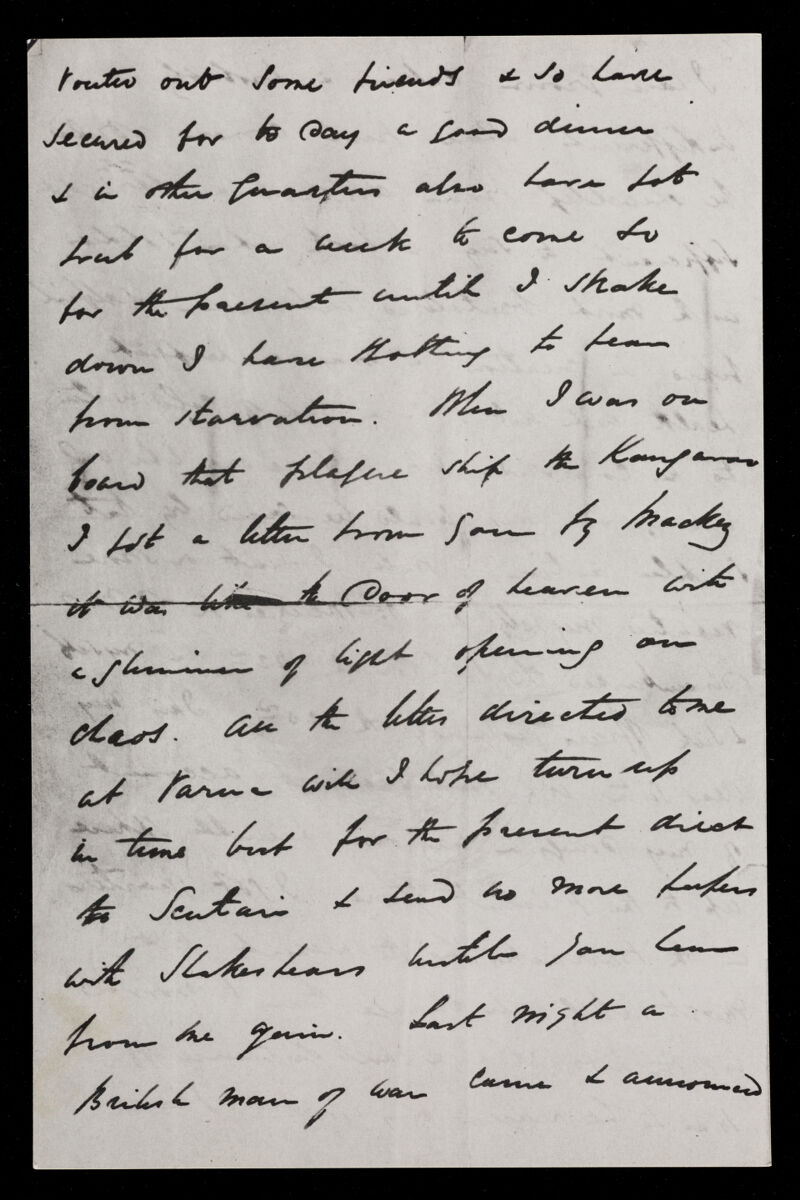 routed out some friends & so have
secured for to day a good dinner
& in other quarters also have got
grub for a week to come so
for the present until I shake
down I have nothing to fear
from starvation. When I was on
board that plague ship the Kangaroo
I got a letter from you by Mackey
it was like the door of heaven with
a glimmer of light opening on
chaos. All the letters directed to me
at Varna will I hope turn up
in time but for the present direct
to Scutari & send no more papers
with until you hear
from me again. Last night a
British man of war came & announced